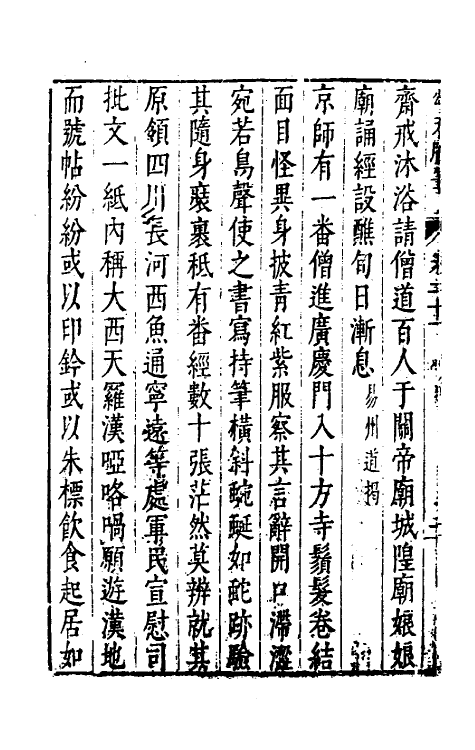 齋戒沐浴請僧道百人于關帝廟城隍廟娘娘
廟誦經設醮旬日漸息易州道揭
京師有一番僧進廣慶門入十方寺鬚髮卷結
面目怪異身披青紅紫服察其言辭開口滯澀
宛若鳥聲使之書寫持筆橫斜蜿蜒如蛇跡驗
其隨身裹裹秪有番經數十張茫然莫辨就其
原領四川長河西魚通寧遠等處軍民宣慰司
批文一紙內稱大西天羅漢啞咯喎願遊漢地
而號帖紛紛或以印鈐或以朱標飲食起居如